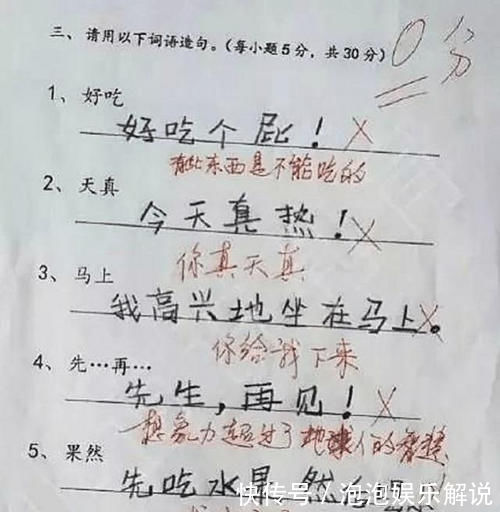 三、请用以下词语造句。（每小题5分，共30分）0分
1、好吃
好吃个屁！
有些东西是不能吃的
2、天真
今天真热！
你真天真
3、马上
我高兴地坐在马上。
你给我下来
4、先…再…
先生，再见！
想象力超过了地球人的智慧
5、果然
先吃水果，然
快传号/泡泡娱乐解说